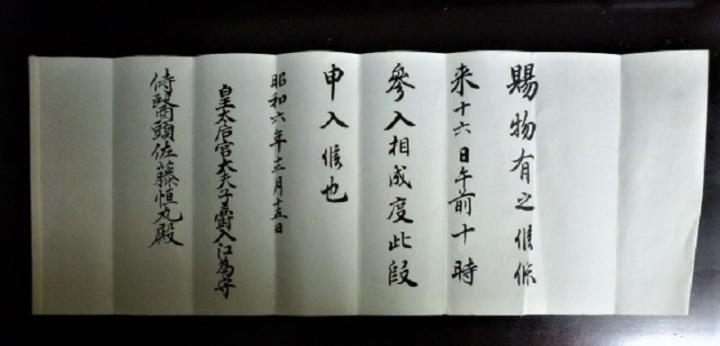 賜物有之候條
来十六日午前十時
參入相成度此段
申入候也
昭和六年十二月十五日
皇太后宮大夫子爵入江為守
侍醫頭佐藤恒丸殿